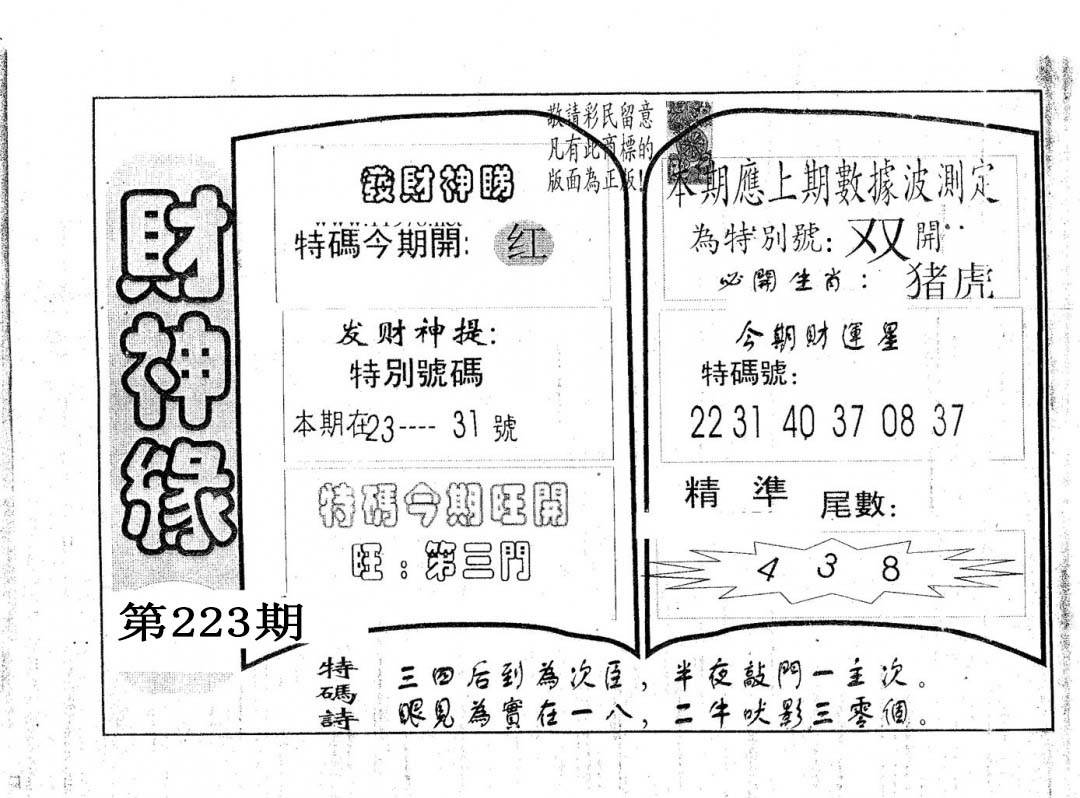 財神緣
第223期
敬請彩民留意
凡有此商標的
版面為正版!
發財神睇
特碼今期開: 红
发财神提:
特別號碼
本期在23----31號
特碼今期旺開
旺:第三門
本期應上期數據波測定
為特別號: 双 開
必開生肖: 猪虎
今期財運星
特碼號:
22 31 40 37 08 37
精準 尾數:
4 3 8
特碼詩
三四后到為次臣,半夜敲門一主次。
眼見為實在一八,二牛吠影三零個。